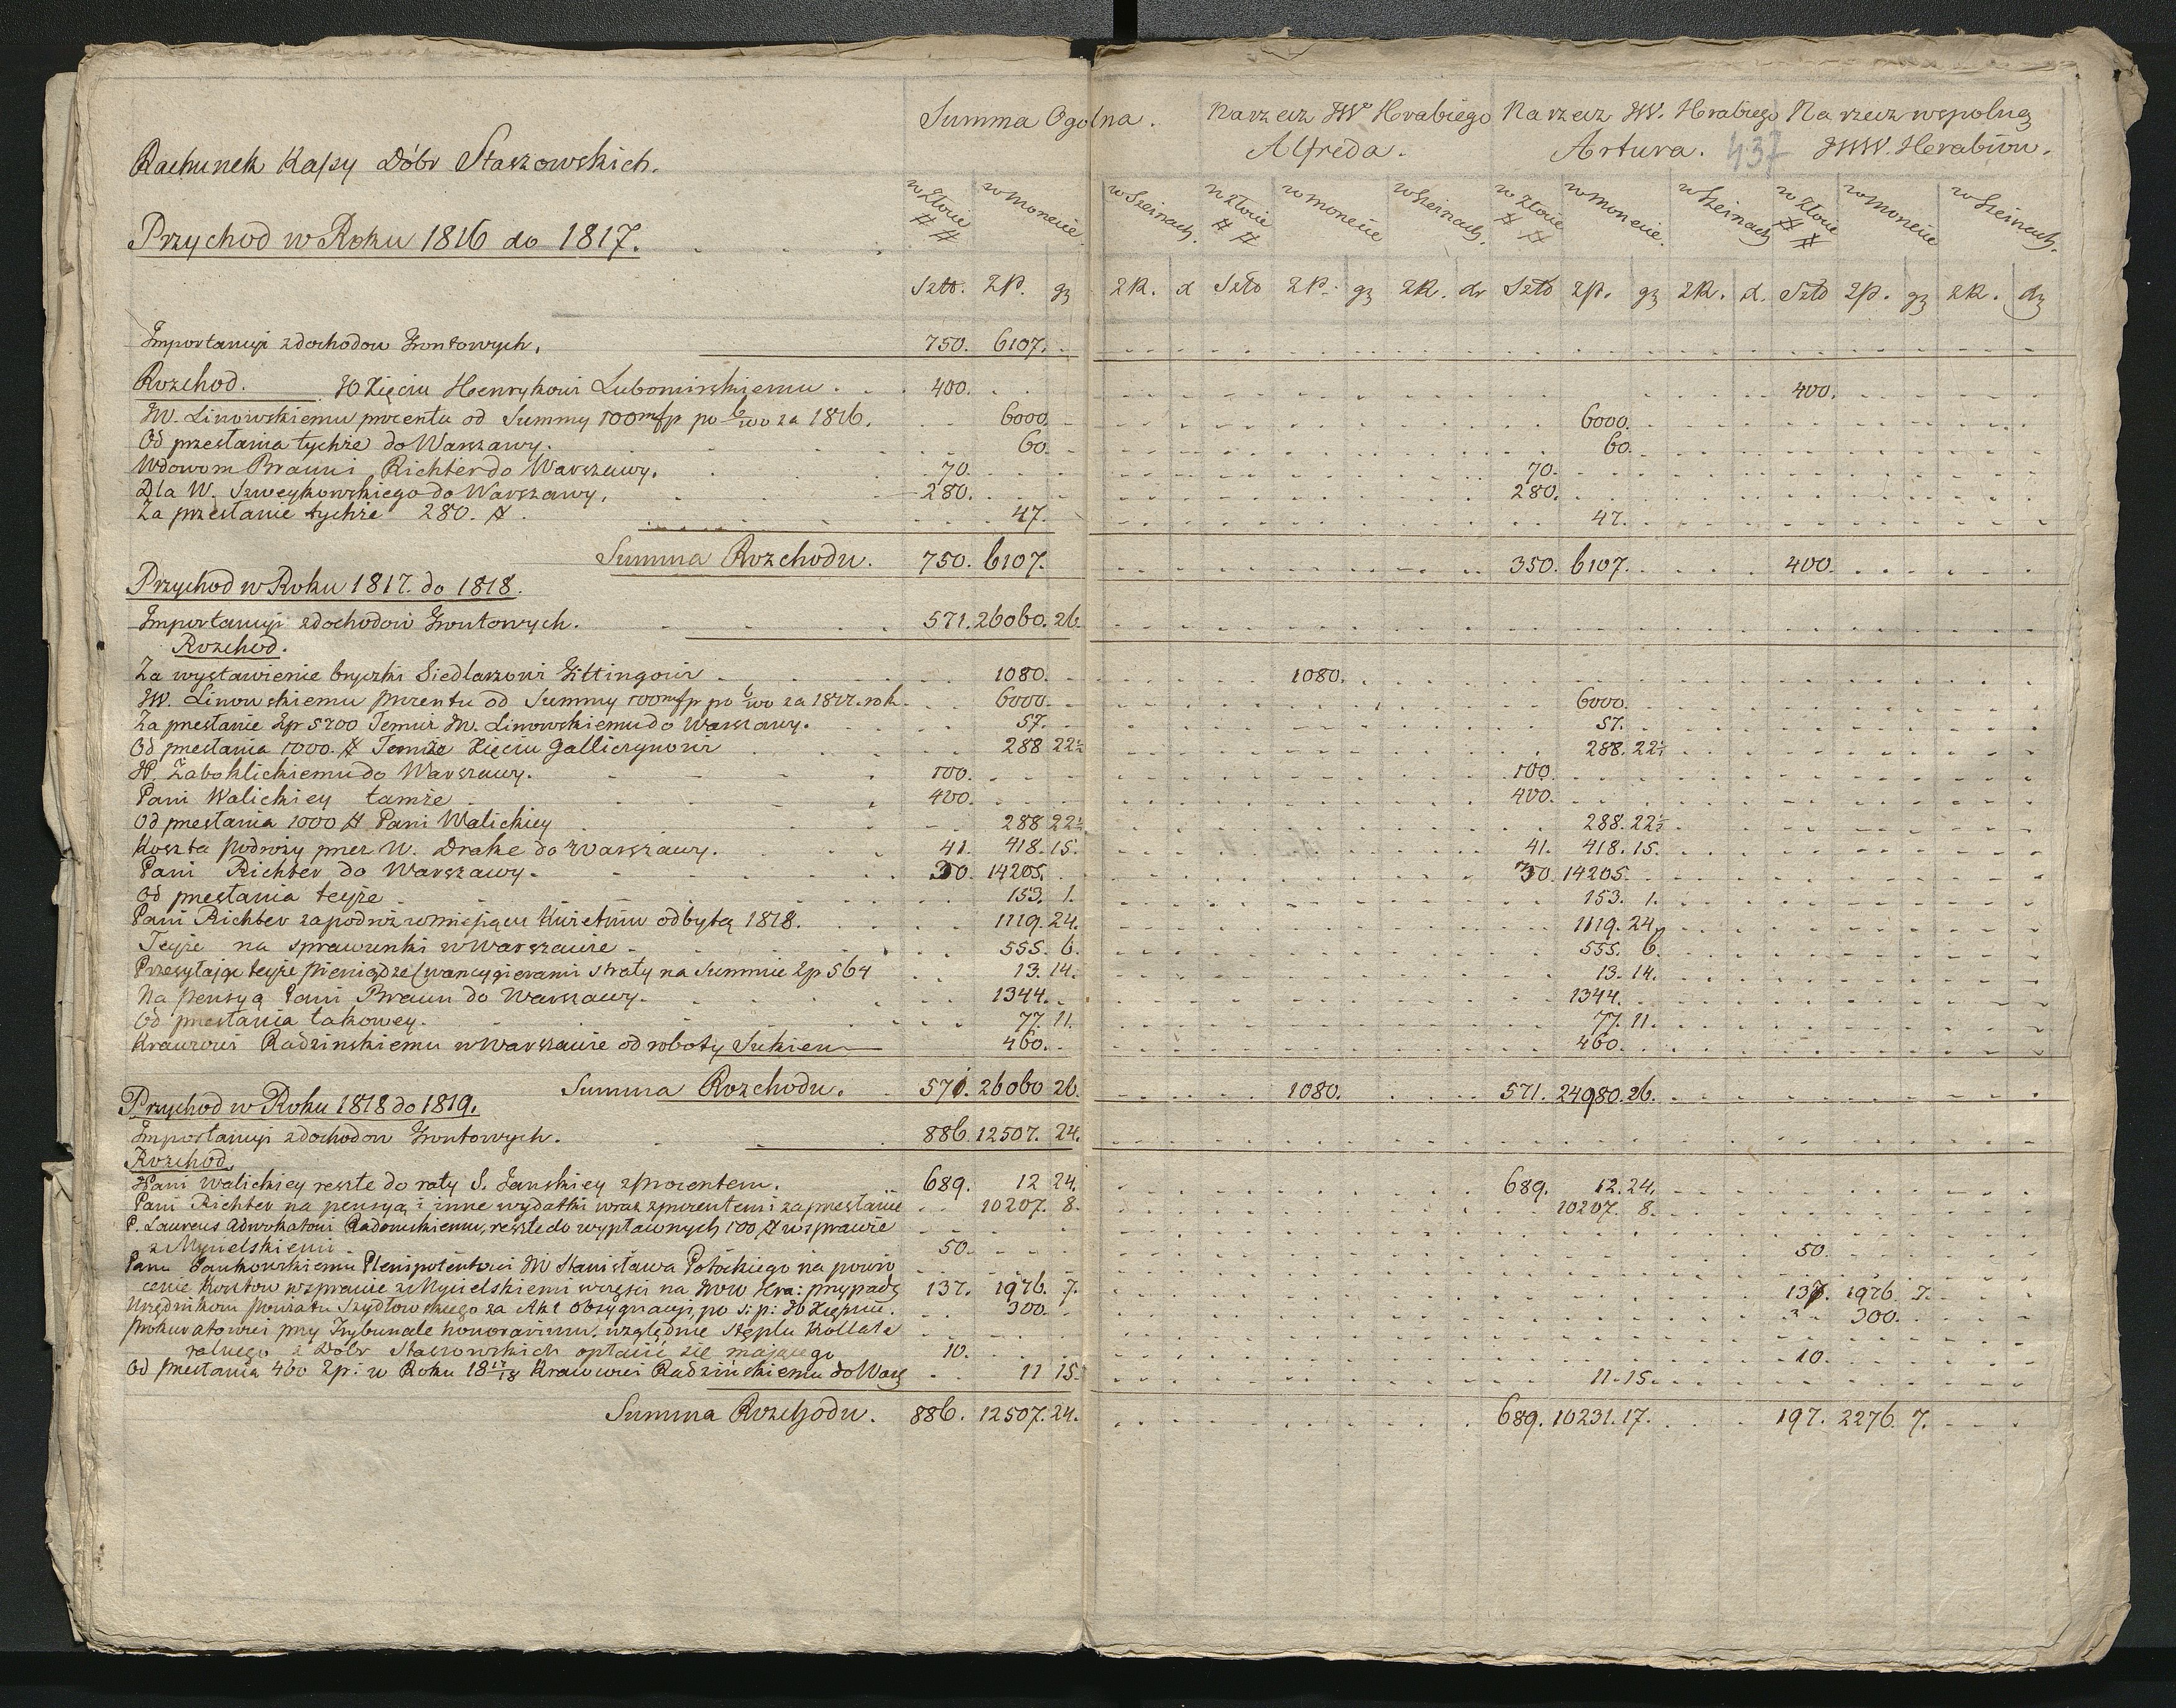 Summa Ogolna. Na rzecz JW° Hrabiego Na rzecz JW. Hrabiego Na rzecz wspolną
Rachunek Kassy Dóbr Staszowskich. Alfreda. Artura. 437 JWW. Hrabiow.
w Złocie ## w Monecie w Szeinach. w Złocie ## w Monecie w Szeinach. w Złocie ## w Monecie. w Szeinach w Złocie ## w Monecie w Szeinach.
Przychod w Roku 1816 do 1817.
Szto. Zp. gr ZR. d Szto Zp. gr ZR. dr Szto Zp. gr ZR. d. Szto Zp. gr ZR. dr
Importancyi z dochodow Gontowych. 750. 6107.
Rozchod. JO Xięciu Henrykowi Lubomirskiemu. 400. 400.
JW. Linowskiemu procentu od Summy 100mfp po 6/100 za 1816. 6000. 6000.
Od przesłania tychże do Warszawy. 60. 60.
Wdowom Brauni, Richter do Warszawy. 70. 70.
Dla W. Szweykowskiego do Warszawy. 280. 280.
Za przesłanie tychże 280. #. 47. 47.
Summa Rozchodu. 750. 6107. 350. 6107. 400.
Przychod w Roku 1817. do 1818.
Importancyi z dochodow Gontowych. 571. 26060. 26.
Rozchod.
Za wystawienie bryczki Siedlarzowi Gittingowi 1080. 1080.
JW. Linowskiemu procentu od Summy 100mfp po 6/100 za 1817. rok 6000. 6000.
Za przesłanie Zp 5700 Temuż JW. Linowskiemu do Warszawy. 57. 57.
Od przesłania 1000. # Temuże Xięciu Galliczynowi 288 22½ 288. 22½
W. Zaboklickiemu do Warszawy. 100. 100.
Pani Walickiey tamże 400. 400.
Od przesłania 1000 # Pani Walickiey 288 22½ 288. 22½
Koszta podroży przez W. Drake do Warszawy. 41. 418. 15. 41. 418. 15.
Pani Richter do Warszawy. 30. 14205. 30. 14205.
Od przesłania teyże 153. 1. 153. 1.
Pani Richter za podróż w miesiącu Kwietniu odbytą 1818. 1119. 24. 1119. 24.
Teyże na sprawunki w Warszawie 555. 6. 555. 6.
Przesyłając teyże pieniądze straty na Summie Zp 564 13. 14. 13. 14.
Na pensyą Pani Braun do Warszawy. 1344. 1344.
Od przesłania takowey. 77. 11. 77. 11.
Krawcowi Radzinskiemu w Warszawie od roboty Sukien 460. 460.
Summa Rozchodu. 571. 26060 26. 1080. 571. 24980. 26.
Przychod w Roku 1818 do 1819.
Importancyi z dochodow Gontowych. 886. 12507. 24.
Rozchod.
Pani Walickiey resztę do raty S. Jańskiey z procentem. 689. 12 24. 689. 12. 24.
Pani Richter na pensyą i inne wydatki wraz z procentem i za przesłanie 10207. 8. 10207. 8.
P. Laureus Adwokatowi Radomskiemu, resztę do wypłaconych 100 # w sprawie
z Mycielskiemi 50. 50.
Panu Jankowskiemu Plenipotentowi JW Stanisława Potockiego na powró
cenie Kosztow w sprawie z Mycielskiemi w części na JWW Hra: przypadł 137. 1976. 7. 137. 1976. 7.
Urzędnikom powiatu Szydłowskiego za Akt Obsygnacyi po ś: p: JO Xiężnie. 300. 300.
Prokuratorowi przy Trybunale honorarium. względnie stęplu Kollate
ralnego z Dóbr Staszowskich opłacić się mającego 10. 10.
Od przesłania 460 Zp: w Roku 1817/18 Krawcowi Radzińskiemu do Warsz 11 15. 11. 15.
Summa Rozchodu. 886. 12507. 24. 689. 10231. 17. 197. 2276. 7.